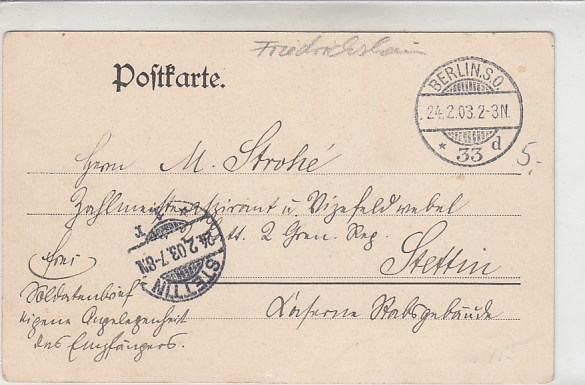 Friedrichshain
Postkarte.
BERLIN.S.O.
24.2.03.2-3N.
* 33 d
5.-
Herrn M. Strohé
Zahlmeisteraspirant u. Vizefeldwebel
2 Gren. Reg.
Stettin
Kaserne Stabsgebäude
frei
Soldatenbrief
eigene Angelegenheit
des Empfängers.
STETTIN
24.2.03.7-8N.
* 1 *